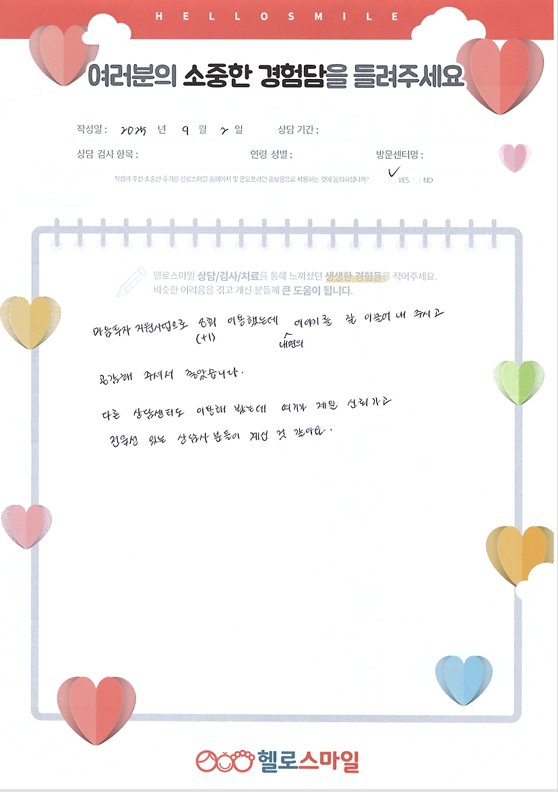 HELLOSMILE
여러분의 소중한 경험담을 들려주세요
작성일 : 2025 년 9 월 2 일 상담 기간 :
상담 검사 항목 : 연령 성별 : 방문센터명 :
작성해 주신 소중한 후기를 헬로스마일 홈페이지 및 온오프라인 홍보용으로 사용하는 것에 동의하십니까? ✓ YES NO
헬로스마일 상담/검사/치료를 통해 느끼셨던 생생한 경험들을 적어주세요.
비슷한 어려움을 겪고 계신 분들께 큰 도움이 됩니다.
마음투자 지원사업으로 8회 이용했는데 이야기를 잘 이끌어 내 주시고
(+1) 내면의
공감해 주셔서 좋았습니다.
다른 상담센터도 이용해 봤는데 여기가 제일 신뢰가고
전문성 있는 상담사 분들이 계신 것 같아요.
헬로스마일